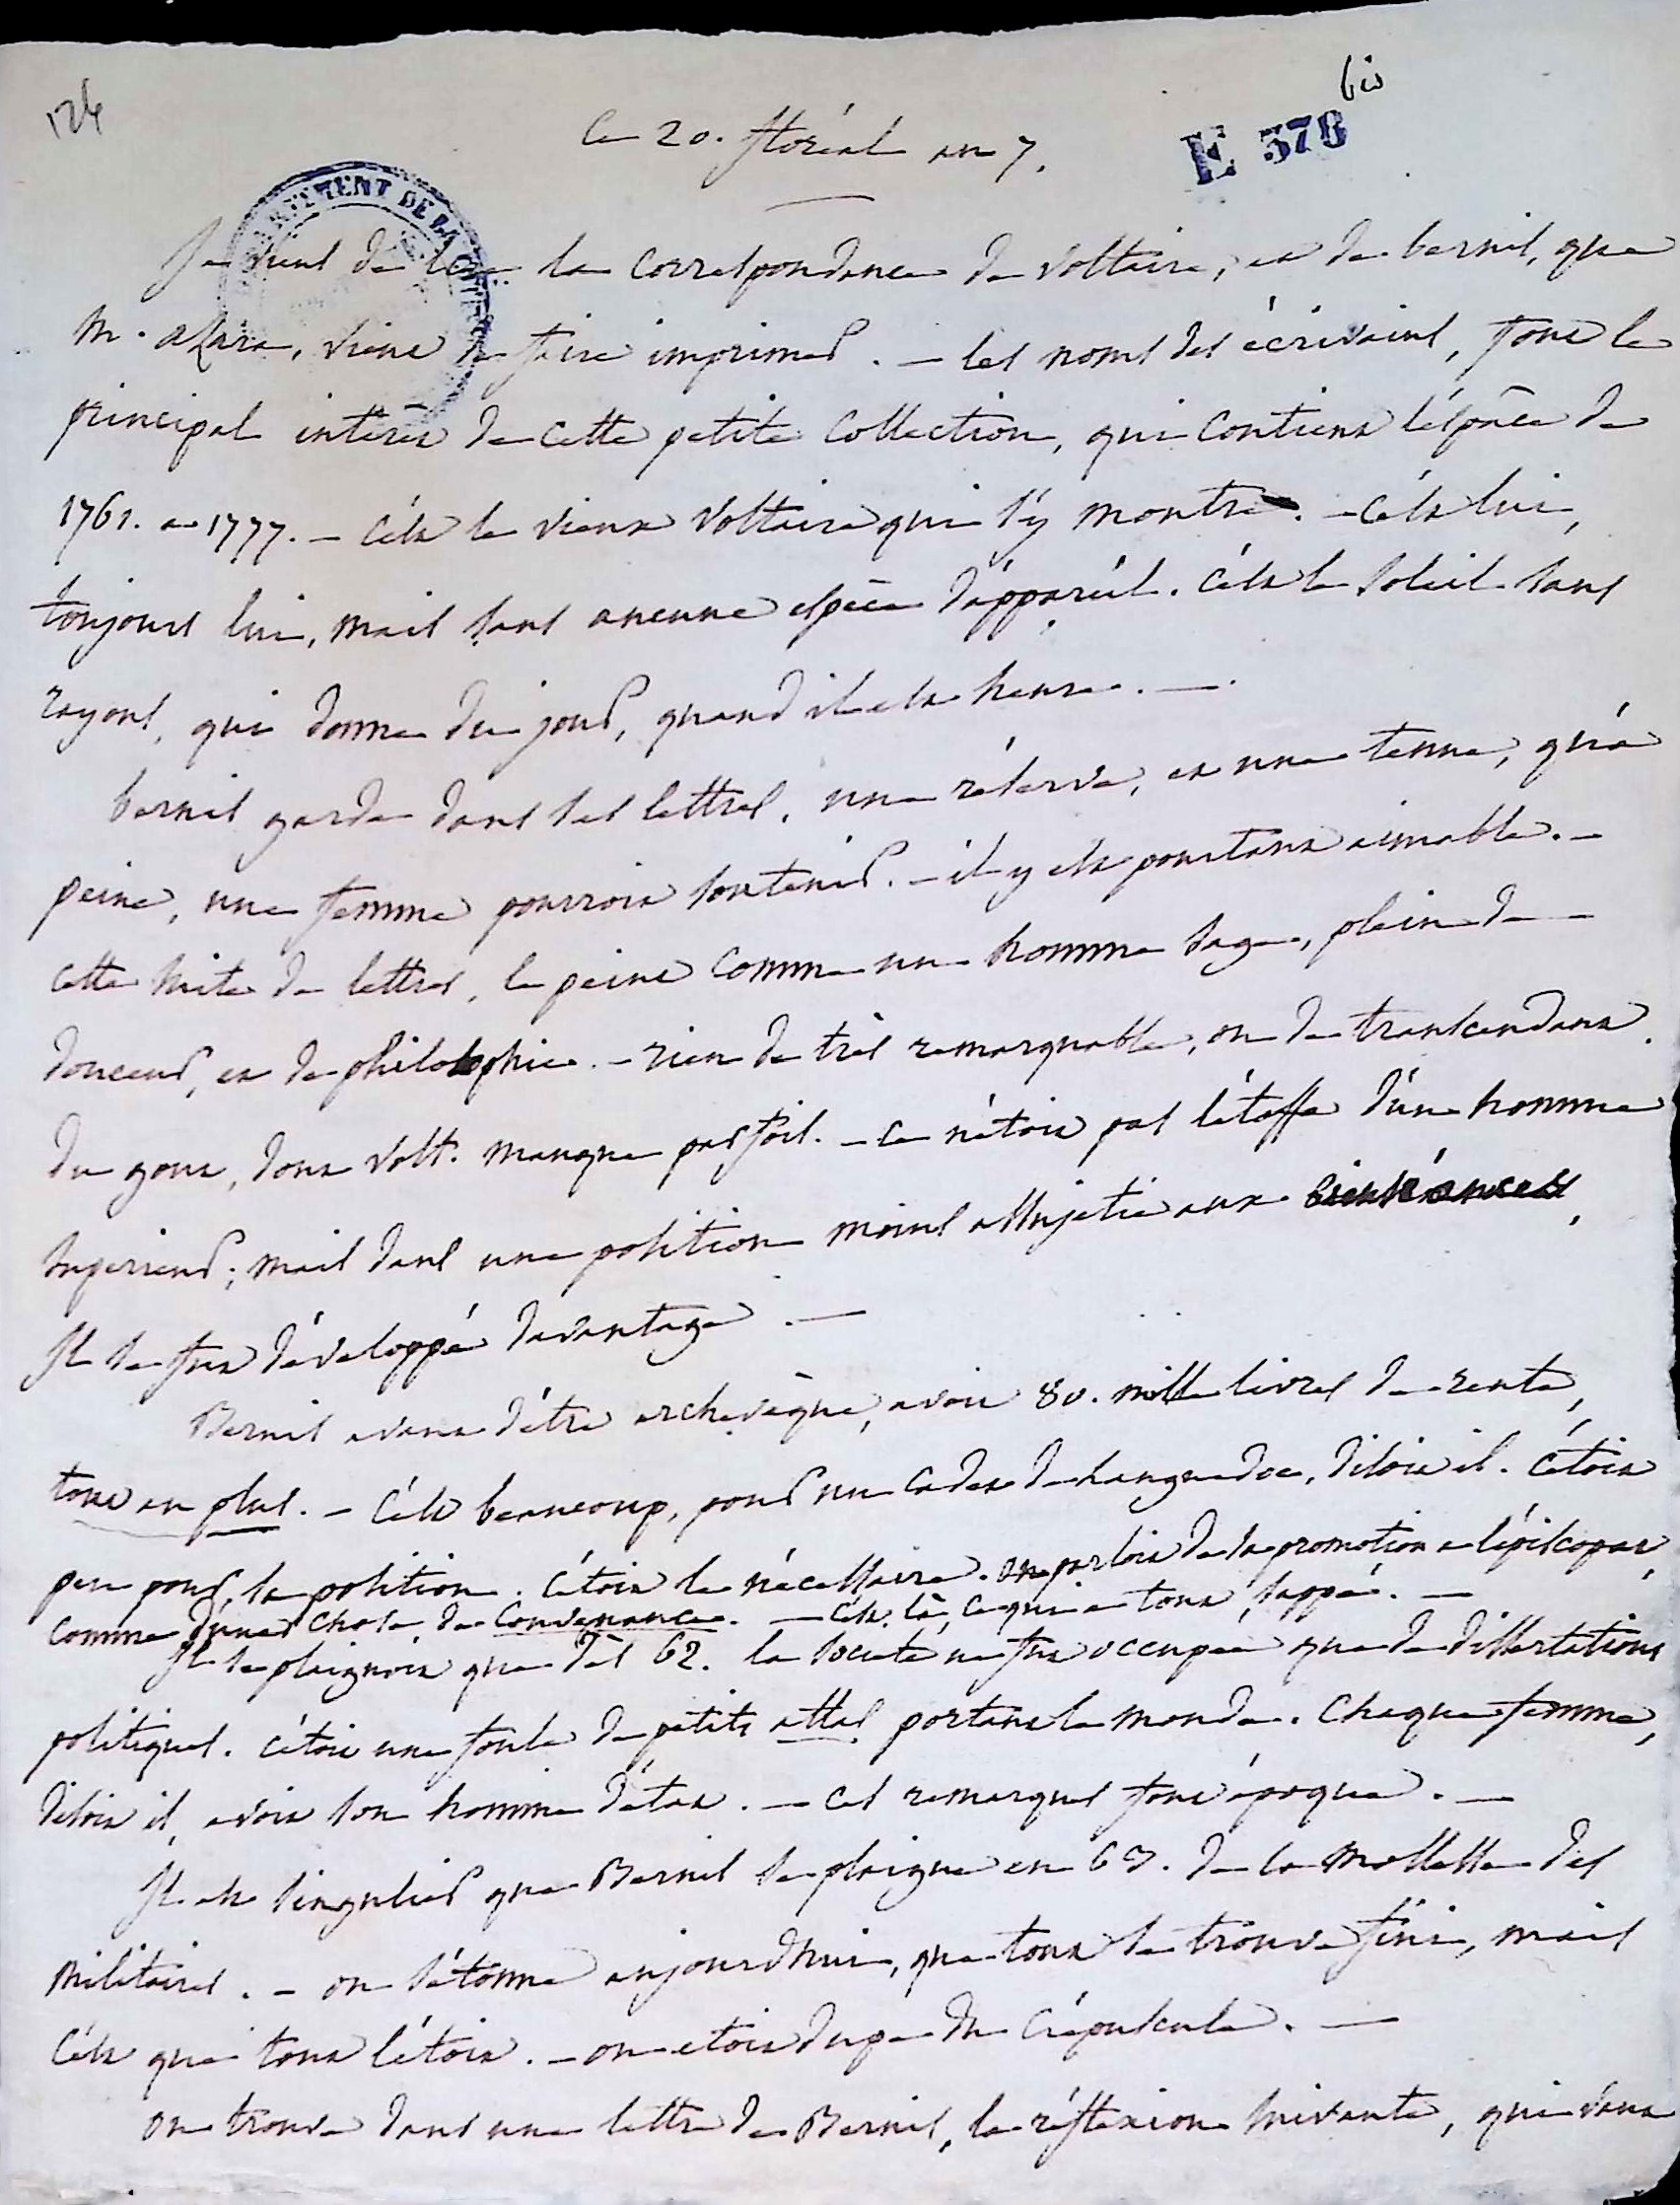 124
bis
Ce 20. floréal an 7.
E 378
DEPARTEMENT DE LA
Je viens de lire la correspondance de voltaire, et de bernis, que
M. azara, vient de faire imprimer. – les noms des écrivains, font le
principal intérêt de cette petite collection, qui contient l'espace de
1761. a 1777. – C'est le vieux voltaire qui s'y montre. – C'est lui,
toujours lui, mais sans aucune espèce d'appareil. C'est le soleil sans
rayons, qui donne du jour, quand il est heure. —.
bernis garde dans ses lettres, une réserve, et une tenue, qu'a
peine, une femme pourroit soutenir. – il y est pourtant aimable. –
cette suite de lettres, le peint comme un homme sage, plein de
douceur, et de philosophie. – rien de très remarquable, ou de transcendant.
du gout, dont volt. manque parfois. – ce n'étoit pas l'étoffe d'un homme
superieur; mais dans une position moins assujetie aux bienséances,
Il se fut développé davantage. —
Bernis avant d'être archevêque, avoit 80. mille livres de rente,
tout au plus. – C'est beaucoup, pour un cadet de Languedoc, disoit il. C'étoit
peu pour sa position. C'étoit le nécessaire. on parloit de sa promotion a l'épiscopat,
comme d'une chose de convenance. — C'est là, ce qui a tout, sappé. —
Il se plaignoit que dès 62. la société ne fut occupée que de dissertations
politiques. C'étoit une foule de petits atlas portant le monde. Chaque femme,
disoit il, avoit son homme d'état. — Ces remarques font époque. —
Il est singulier que Bernis se plaigne en 63. de la mollesse des
militaires. – on s'étonne aujourdhui, que tout se trouve fini, mais
C'est que tout l'étoit. – on etoit dupe du Crépuscule. —
On trouve dans une lettre de Bernis, la réflexion suivante, qui vaut